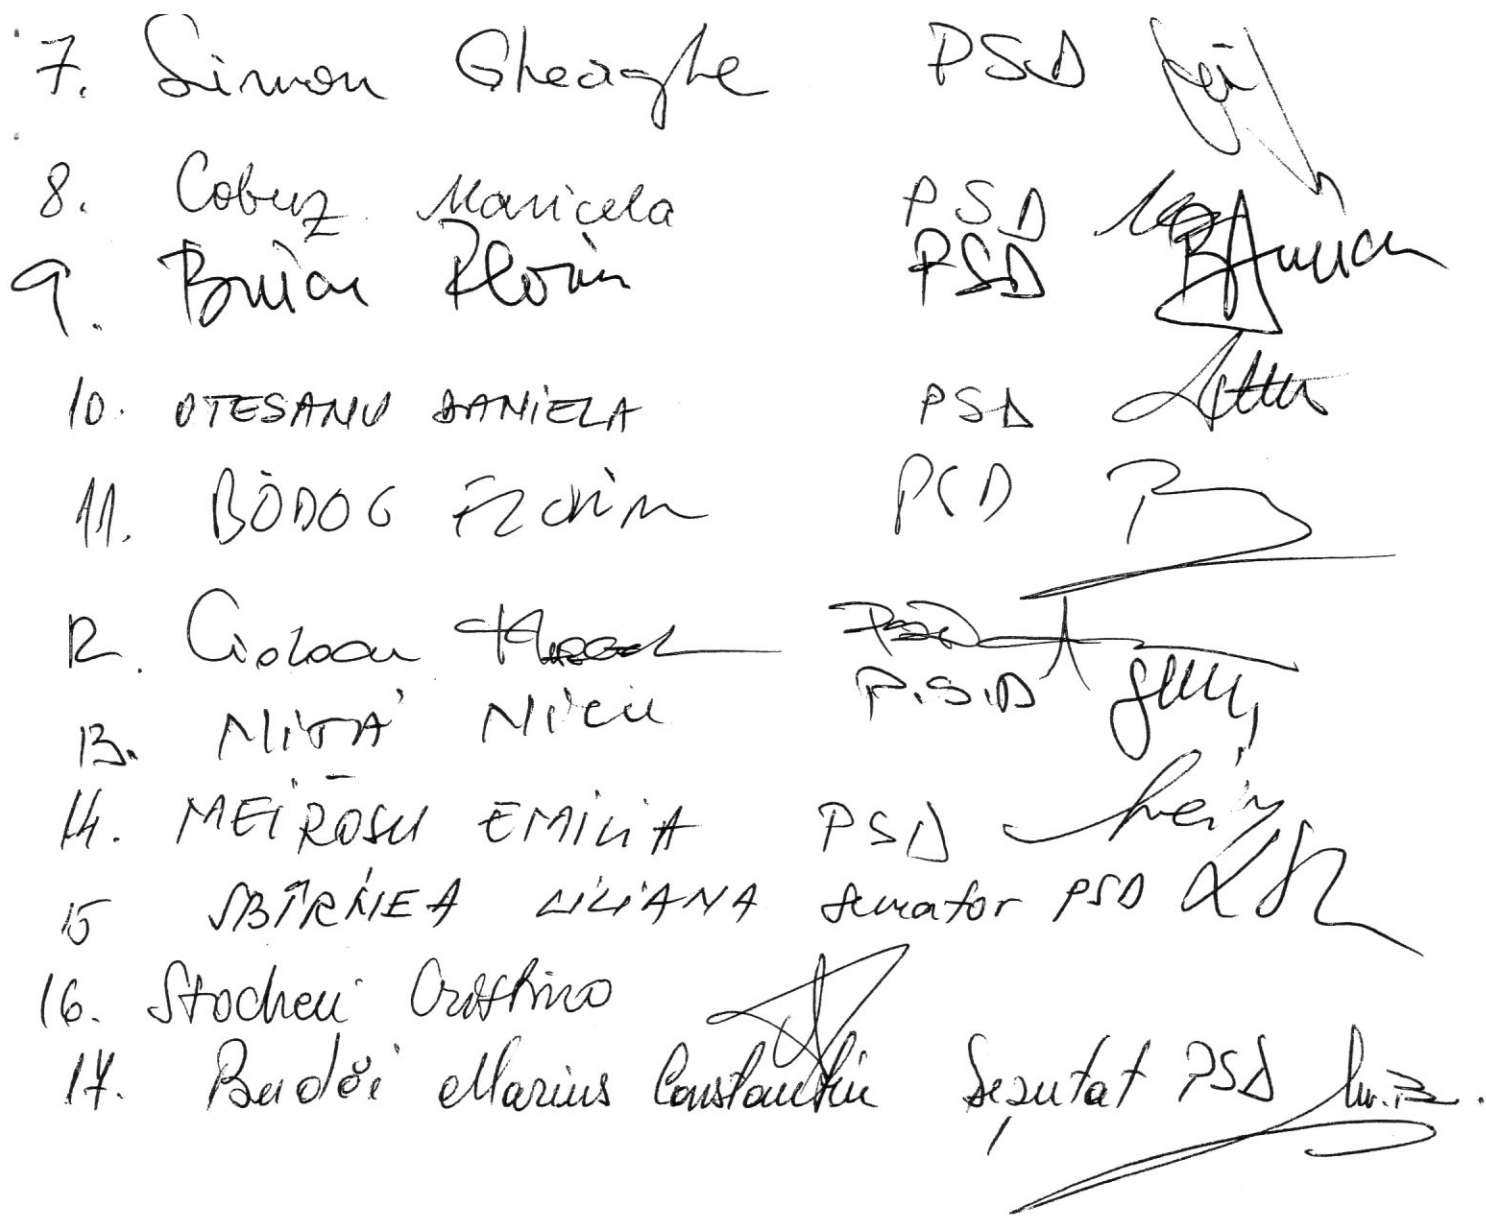 7. Simon Gheorghe PSD
8. Cobuz Maricela PSD
9. Buicu Florin PSD
10. OTESANU DANIELA PSD
11. BODOG FLORIN PSD
12. PSD
13. NIȚĂ Nicu P.S.D
14. MEIROSU EMILIA PSD
15 SBÎRNEA LILIANA senator PSD
16. Stocheci Cristina
17. Budăi Marius Constantin Deputat PSD